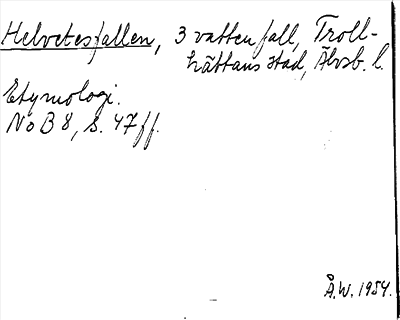 Helvetesfallen, 3 vattenfall, Troll-
hättans stad, Älvsb. l.
Etymologi.
NoB 8, s. 47 ff.
Å.W. 1954.